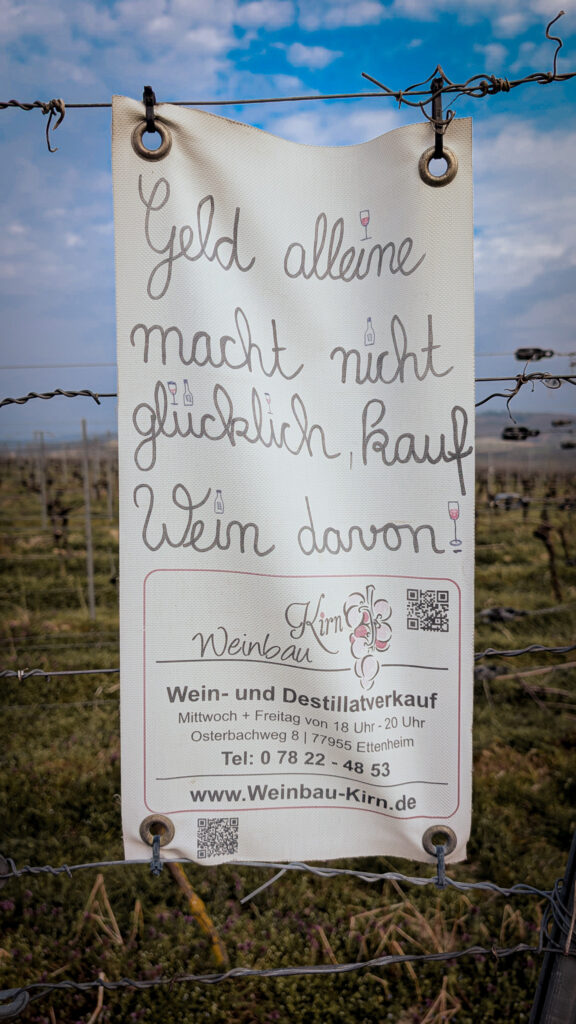 Geld alleine
macht nicht
glücklich, kauf
Wein davon!
Kirn
Weinbau
Wein- und Destillatverkauf
Mittwoch + Freitag von 18 Uhr - 20 Uhr
Osterbachweg 8 | 77955 Ettenheim
Tel: 0 78 22 - 48 53
www.Weinbau-Kirn.de